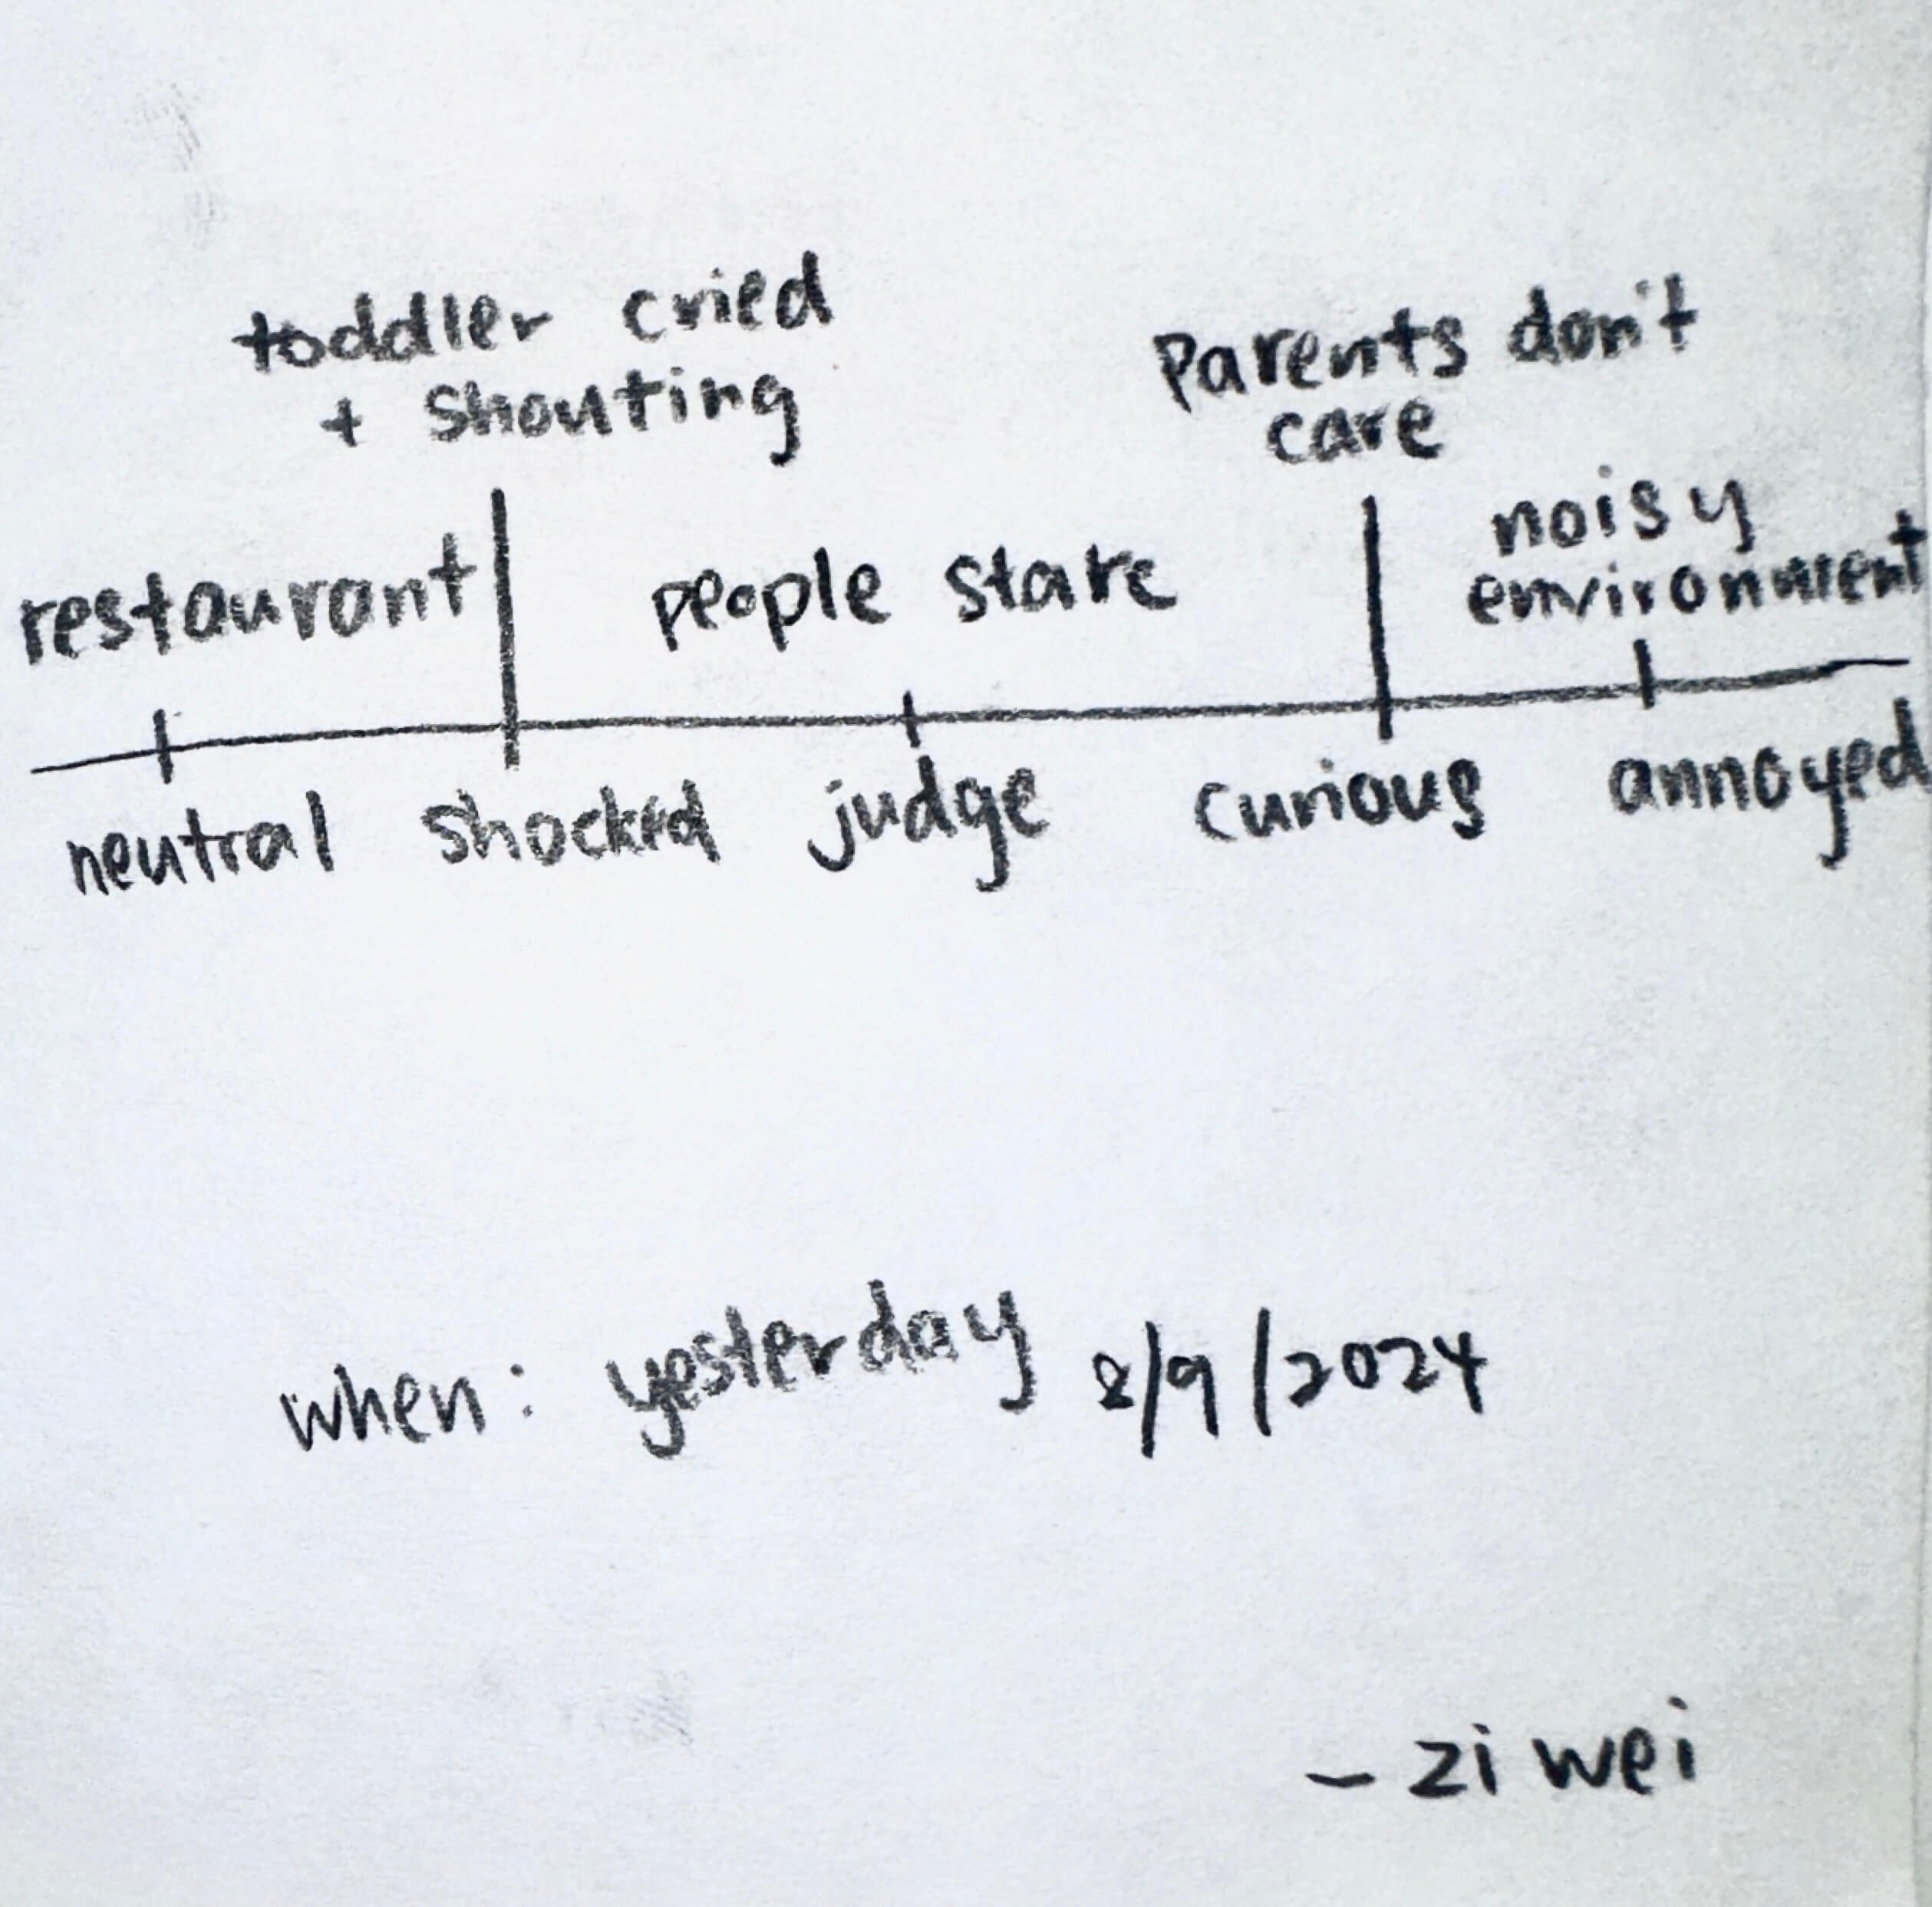 toddler cried
+ shouting
parents don't
care
restaurant
people stare
noisy
environment
neutral shocked judge curious annoyed
when: yesterday 8/9/2024
- zi wei